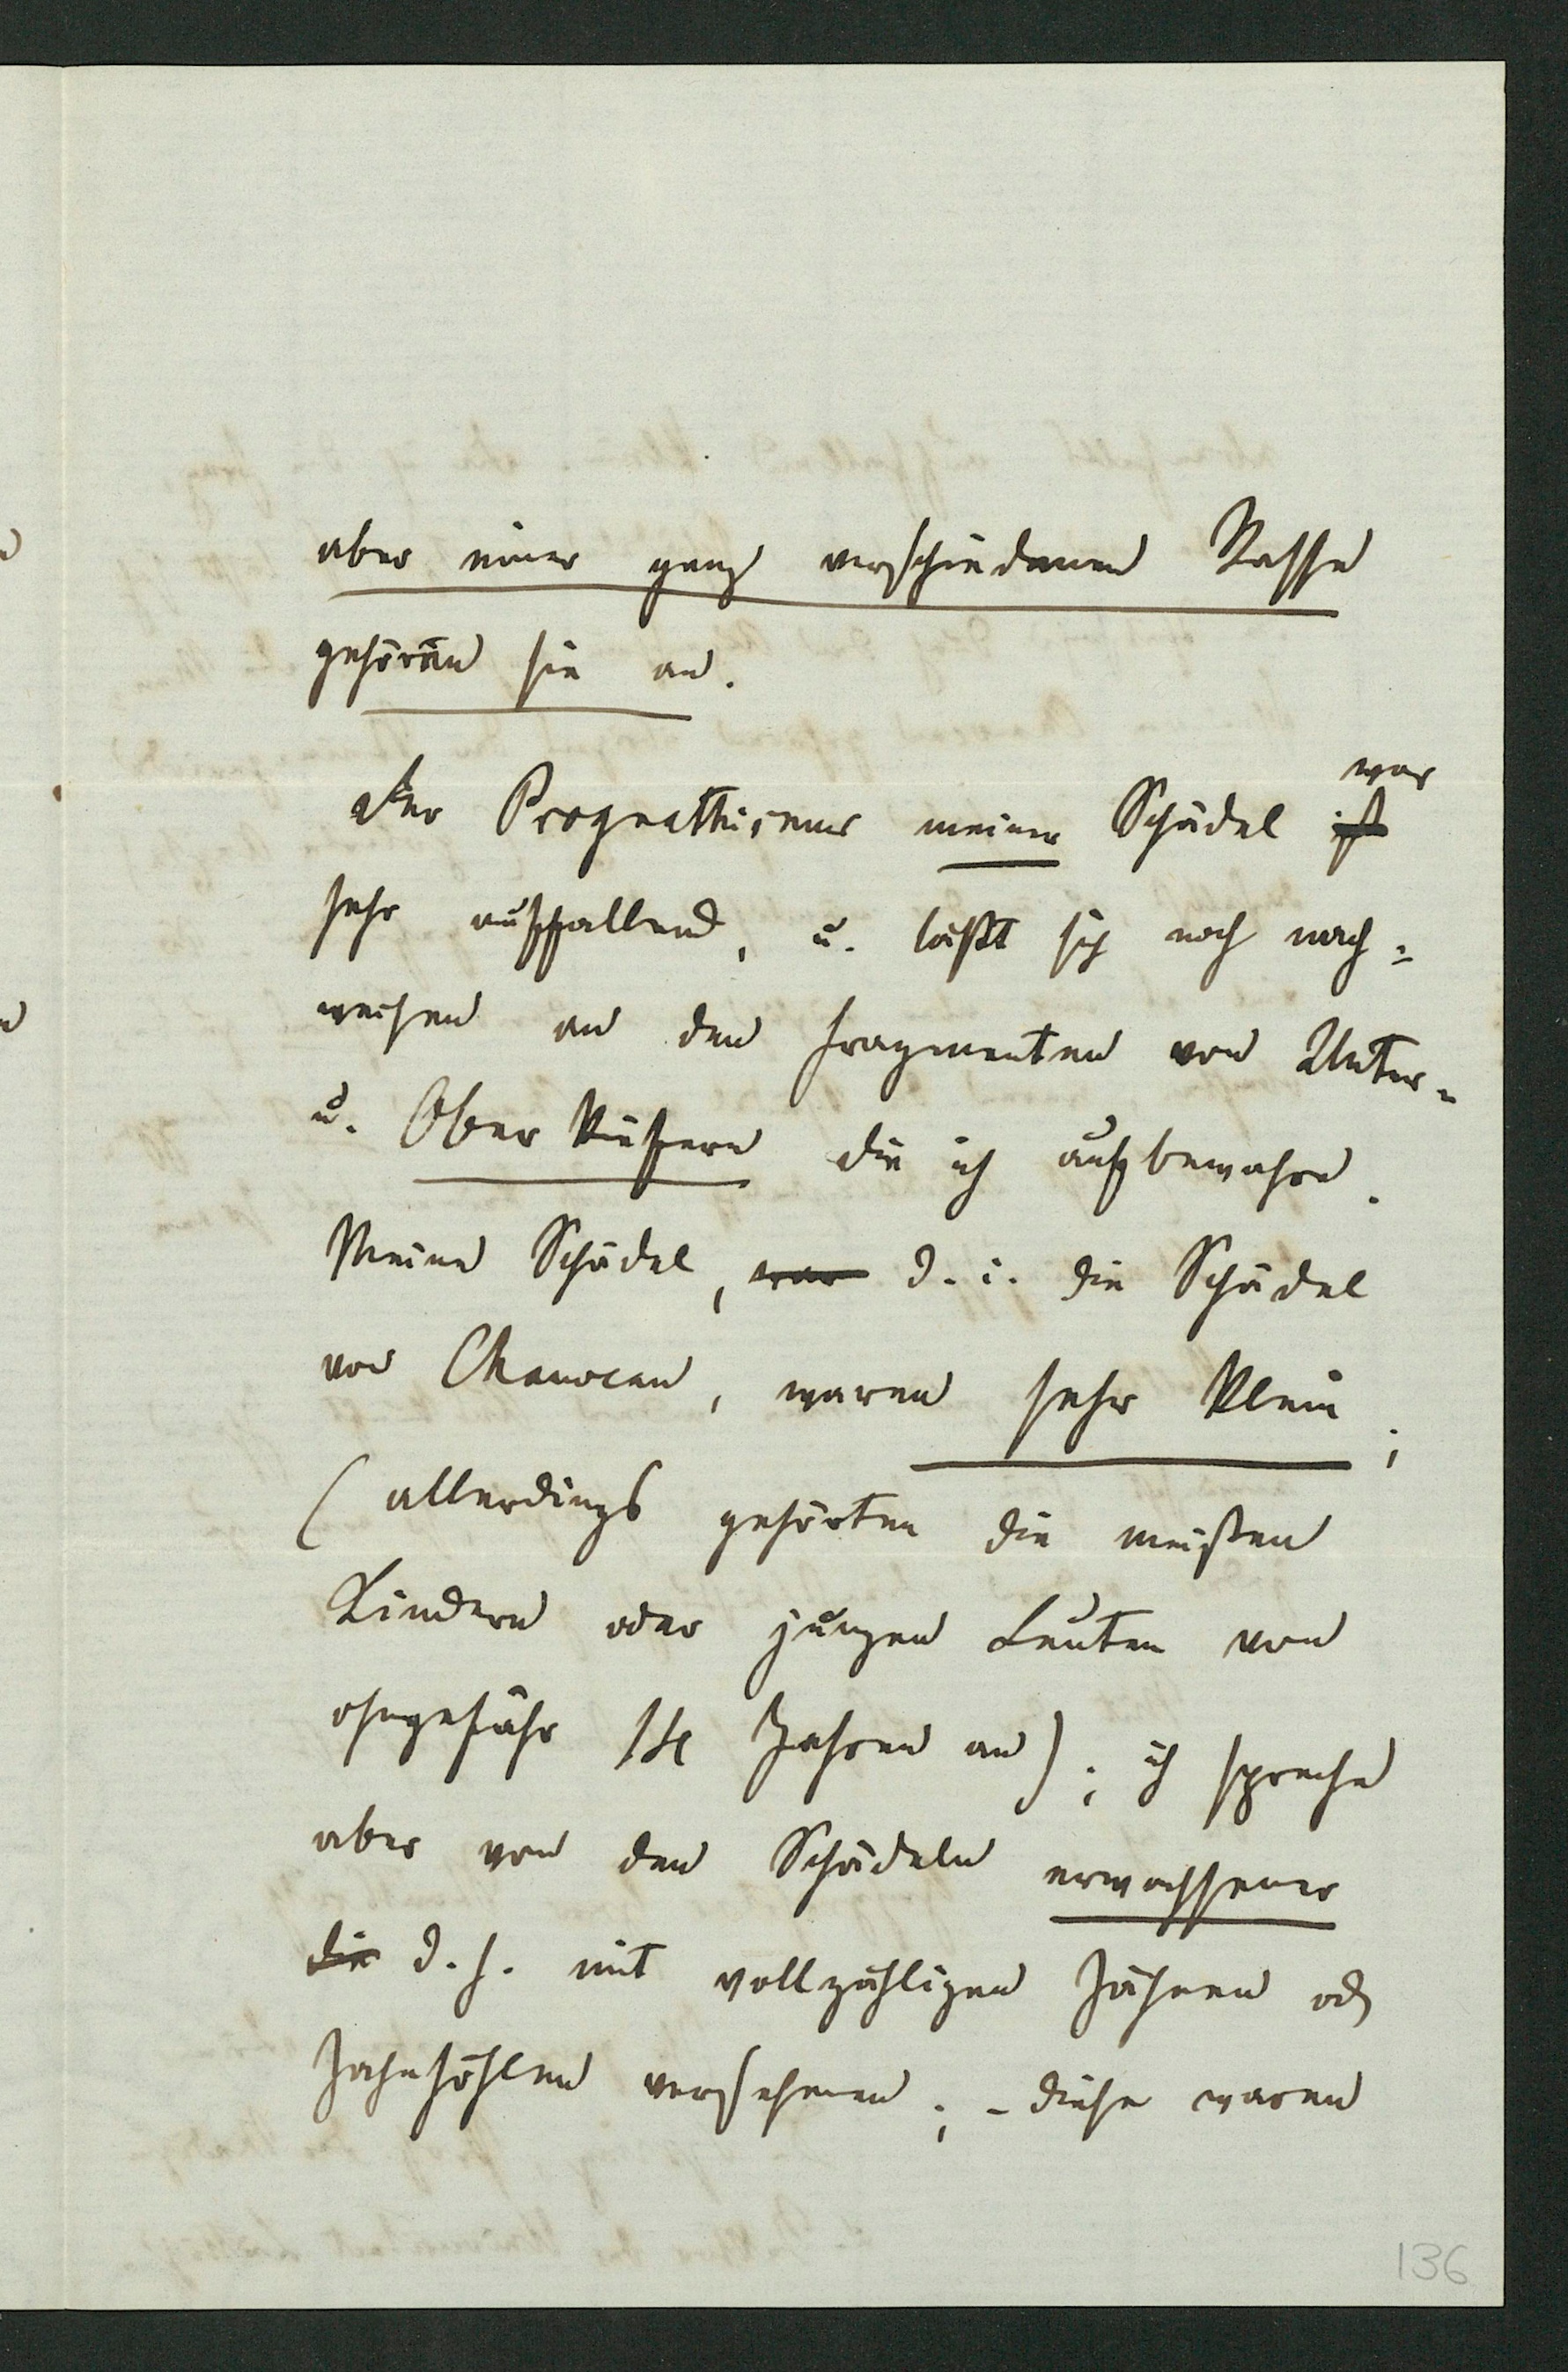 aber einer ganz verschiedenen Rasse
gehören sie an.
war
Der Prognathismus meiner Schädel ist
sehr auffallend, u. läßt sich noch nach=
weisen an den Fragmenten von Unter-
u. Ober Kiefern die ich aufbewahre.
Meine Schädel, war d. i. die Schädel
von Chauvaux, waren sehr klein;
(allerdings gehörten die meisten
Kindern oder jungen Leuten von
ohngefähr 14 Jahren an); ich spreche
aber von den Schädeln erwachsener
die d. h. mit vollzähligen Zähnen od
Zahnhöhlen versehenen; - diese waren
136